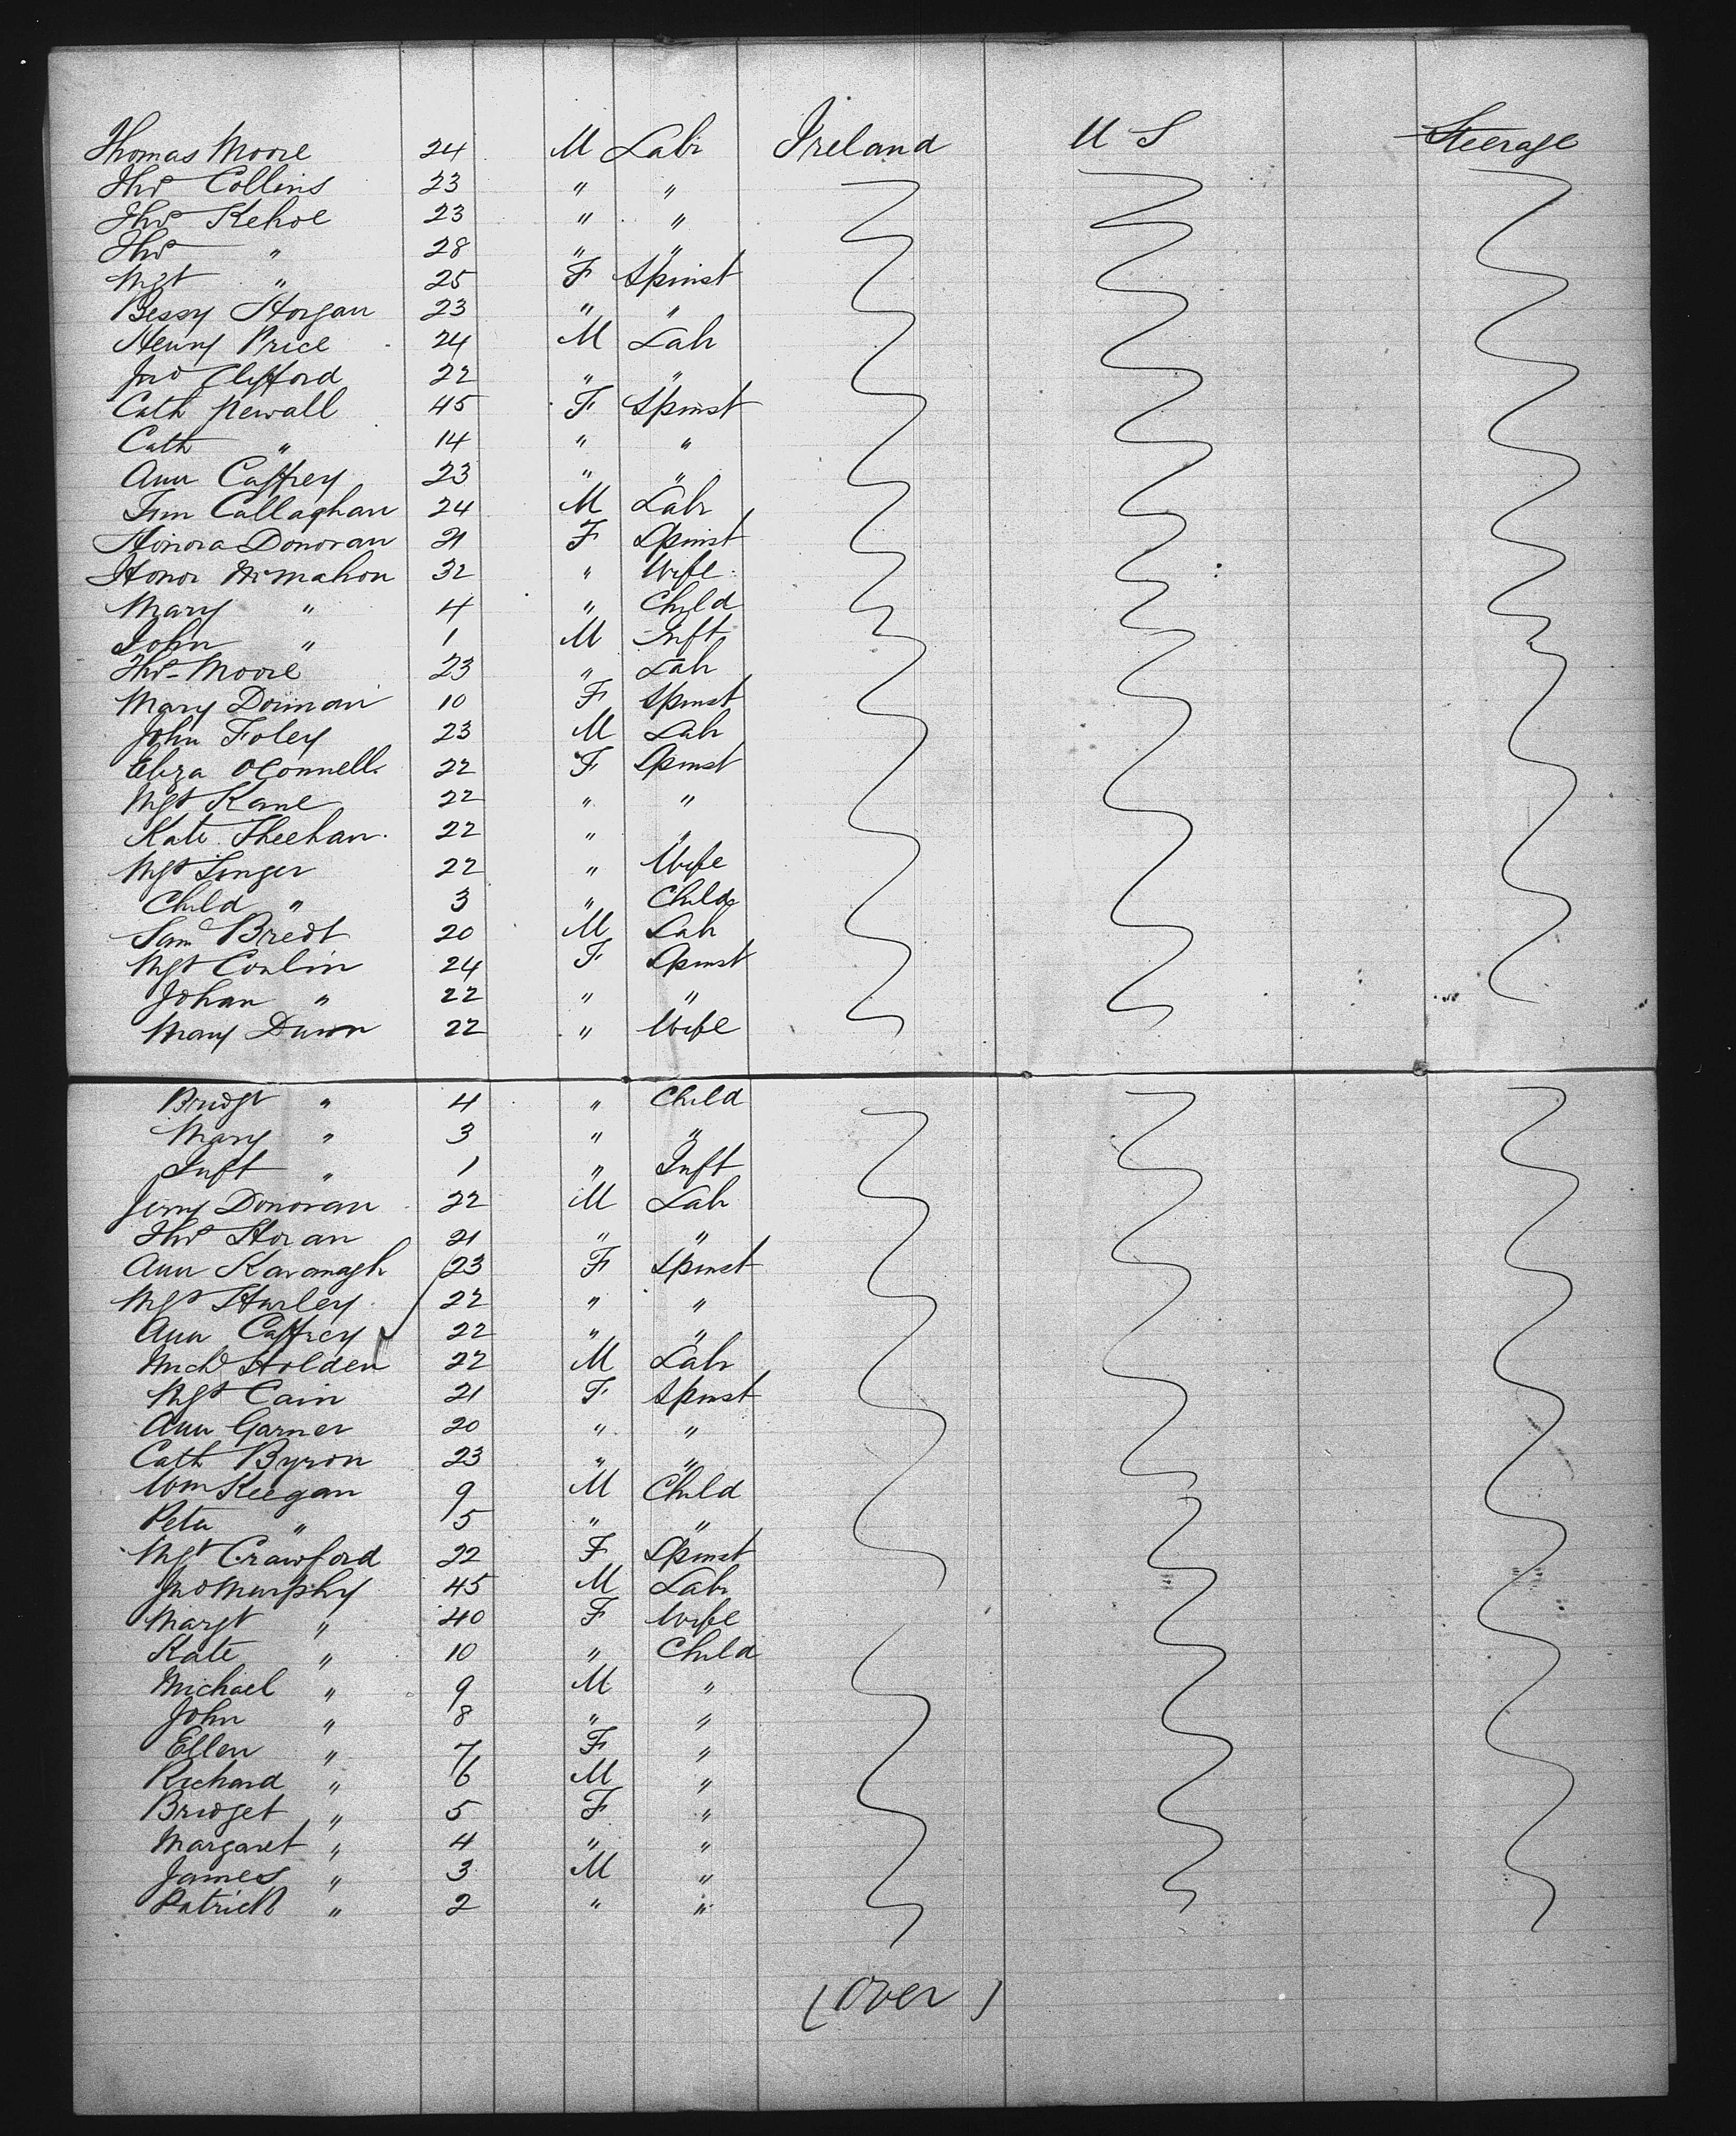 Thomas Moore 24 M Labr Ireland U S Steerage
Thos Collins 23 " "
Thos Kehoe 23 " "
Thos " 28 " "
Mgt " 25 F Spinst
Bessy Horgan 23 " "
Henry Price 24 M Labr
Jno Clifford 22 " "
Cath Newall 45 F Spinst
Cath " 14 " "
Ann Caffrey 23 " "
Tim Callaghan 24 M Labr
Honora Donovan 21 F Spinst
Honor McMahon 32 " Wife
Mary " 4 " Child
John " 1 M Inft
Thos Moore 23 " Labr
Mary 10 F Spinst
John Foley 23 M Labr
Eliza OConnell 22 F Spinst
Mgt Kane 22 " "
Kate Sheehan 22 " "
Mgt Singer 22 " Wife
Child " 3 " Child
Saml 20 M Labr
Mgt Conlin 24 F Spinst
Johan " 22 " "
Mary Dunn 22 " Wife
Bridgt " 4 " Child
Mary " 3 " "
Inft " 1 " Inft
Jerry Donovan 22 M Labr
Thos Horan 21 " "
Ann Kavanagh 23 F Spinst
Mgt Hurley 22 " "
Ann Caffrey 22 " "
Michl Holden 22 M Labr
Mgt Cain 21 F Spinst
Ann Garner 20 " "
Cath Byron 23 " "
Wm Keegan 9 M Child
Peter " 5 " "
Mgt Crawford 22 F Spinst
Jno Murphy 45 M Labr
Margt " 40 F Wife
Kate " 10 " Child
Michael " 9 M "
John " 8 " "
Ellen " 7 F "
Richard " 6 M "
Bridget " 5 F "
Margaret " 4 " "
James " 3 M "
Patrick " 2 " "
(Over)